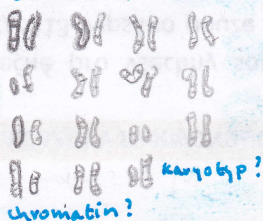 karyotyp?
chromatin?